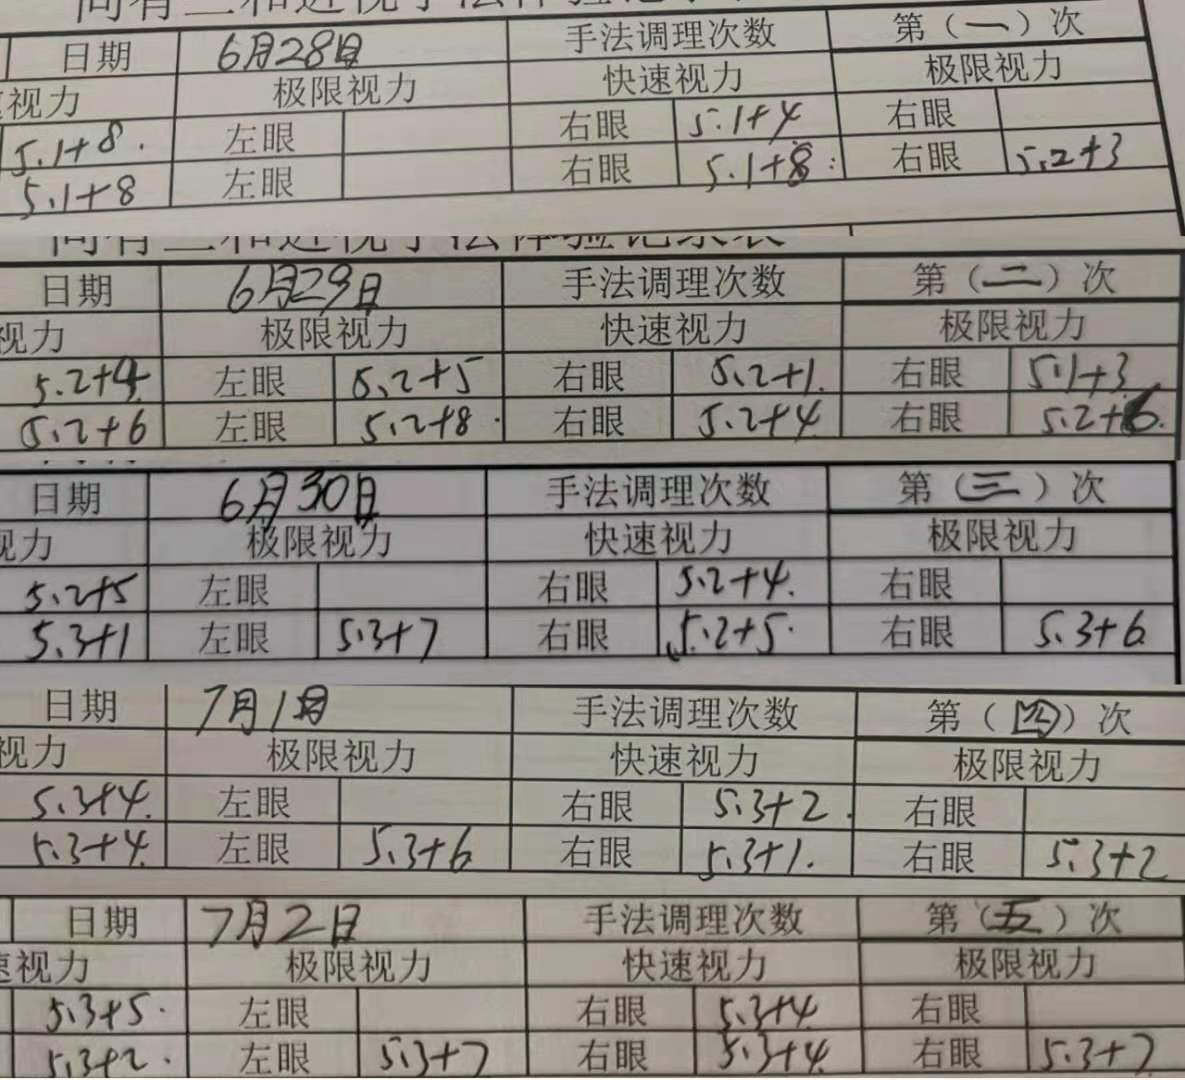 日期 6月28日 手法调理次数 第（一）次
视力 极限视力 快速视力 极限视力
5.1+8. 左眼 右眼 5.1+4 右眼
5.1+8 左眼 右眼 5.1+8 右眼 5.2+3
日期 6月29日 手法调理次数 第（二）次
视力 极限视力 快速视力 极限视力
5.2+4 左眼 5.2+5 右眼 5.2+1. 右眼 5.1+3
5.2+6 左眼 5.2+8. 右眼 5.2+4 右眼 5.2+6.
日期 6月30日 手法调理次数 第（三）次
视力 极限视力 快速视力 极限视力
5.2+5 左眼 右眼 5.2+4. 右眼
5.3+1 左眼 5.3+7 右眼 5.2+5. 右眼 5.3+6
日期 7月1日 手法调理次数 第（四）次
视力 极限视力 快速视力 极限视力
5.3+4. 左眼 右眼 5.3+2. 右眼
5.3+4. 左眼 5.3+6 右眼 5.3+1. 右眼 5.3+2
日期 7月2日 手法调理次数 第（五）次
速视力 极限视力 快速视力 极限视力
5.3+5. 左眼 右眼 5.3+4 右眼
5.3+2. 左眼 5.3+7 右眼 5.3+4. 右眼 5.3+7